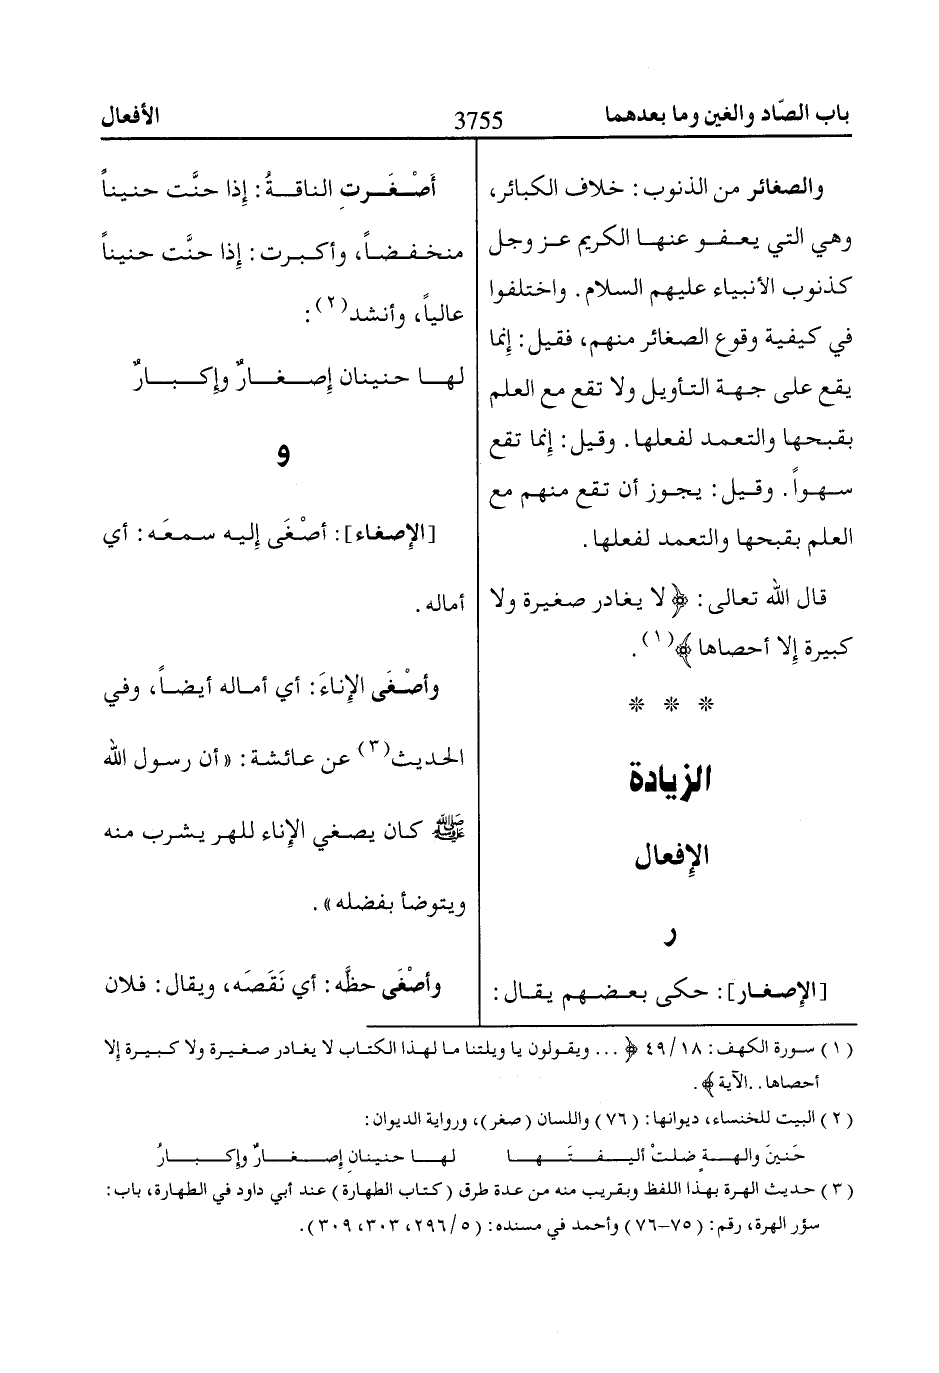 باب الصّاد والغين وما بعدهما
3755
الأفعال
والصغائر من الذنوب: خلاف الكبائر،
وهي التي يعفو عنها الكريم عز وجل
كذنوب الأنبياء عليهم السلام. واختلفوا
في كيفية وقوع الصغائر منهم، فقيل: إنما
يقع على جهة التأويل ولا تقع مع العلم
بقبحها والتعمد لفعلها. وقيل: إنما تقع
سهواً. وقيل: يجوز أن تقع منهم مع
العلم بقبحها والتعمد لفعلها.
قال الله تعالى: ﴿لا يغادر صغيرة ولا
كبيرة إلا أحصاها﴾(١).
* * *
الزيادة
الإفعال
ر
[الإصغار]: حكى بعضهم يقال:
أَصْغَرت الناقةُ: إذا حنَّت حنيناً
منخفضاً، وأكبرت: إذا حنَّت حنيناً
عالياً، وأنشد(٢):
لهـا حنينان إصغـارٌ وإكبـارٌ
و
[الإصغاء]: أصْغَى إليه سمعَه: أي
أماله.
وأصْغَى الإناءَ: أي أماله أيضاً، وفي
الحديث(٣) عن عائشة: «أن رسول الله
ﷺ كان يصغي الإناء للهر يشرب منه
ويتوضأ بفضله».
وأصْغَى حظَّه: أي نَقَصَه، ويقال: فلان
(١) سورة الكهف: ٤٩/١٨ ﴿... ويقولون يا ويلتنا ما لهذا الكتاب لا يغادر صغيرة ولا كبيرة إلا
أحصاها..الآية﴾.
(٢) البيت للخنساء، ديوانها: (٧٦) واللسان (صغر)، ورواية الديوان:
حَنينَ والهـةٍ ضلتْ أليفـتَـهـا لهـا حنينانِ إصغـارٌ وإكبـارُ
(٣) حديث الهرة بهذا اللفظ وبقريب منه من عدة طرق (كتاب الطهارة) عند أبي داود في الطهارة، باب:
سؤر الهرة، رقم: (٧٥-٧٦) وأحمد في مسنده: (٢٩٦/٥، ٣٠٣، ٣٠٩).